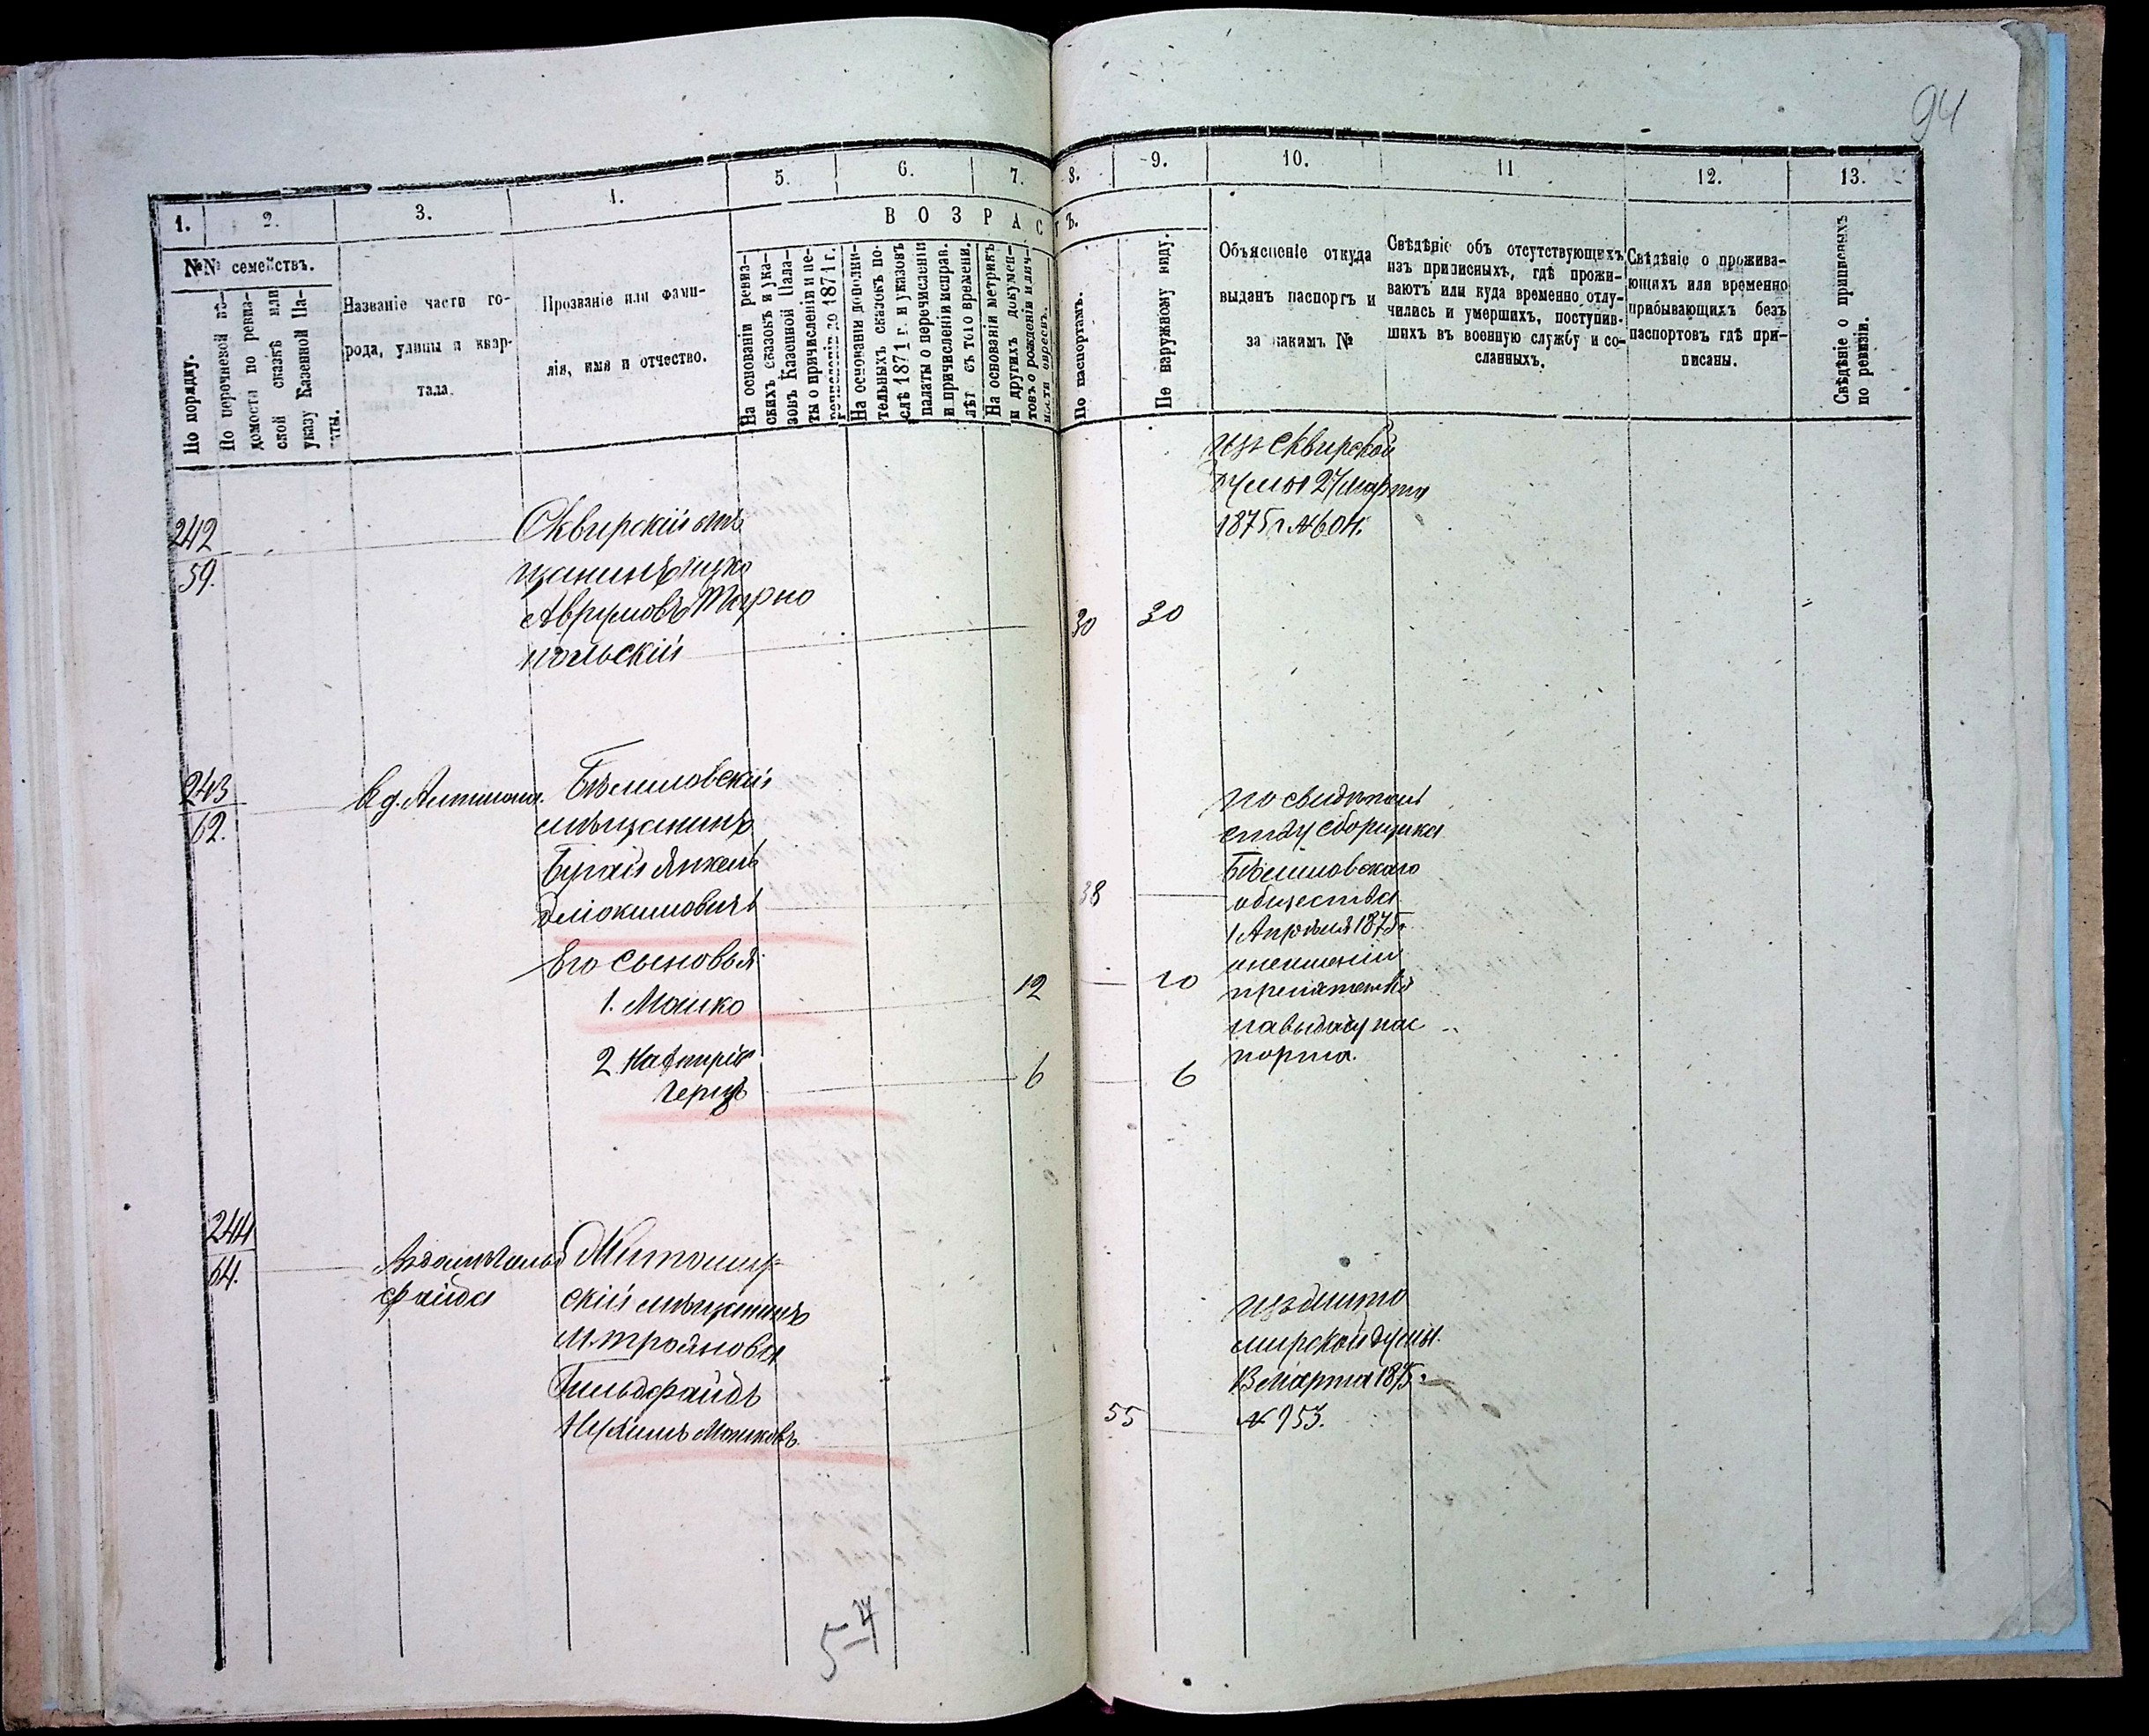 94
1. 2. 3. 4. 5. 6. 7. 8. 9. 10. 11 12. 13.
ВОЗРАСТЪ.
№№ семействъ.
По порядку.
По перечневой вѣ-
домости по ревиз-
ской сказкѣ или
указу Казенной Па-
латы.
Названіе части го-
рода, улицы и квар-
тала.
Прозваніе или фами-
лія, имя и отчество.
На основаніи ревиз-
скихъ сказокъ и ука-
зовъ Казенной Пала-
ты о причисленіи и пе-
речисленіи до 1871 г.
На основаніи дополни-
тельныхъ сказокъ по-
слѣ 1871 г. и указовъ
палаты о перечисленіи
и причисленіи исправ.
лѣт съ того времени.
На основаніи метрикъ
и другихъ докумен-
товъ о рожденіи и лич-
ности евреевъ.
По паспортамъ.
По наружному виду.
Объясненіе откуда
выданъ паспортъ и
за какимъ №
Свѣдѣніе объ отсутствующихъ
изъ приписныхъ, гдѣ прожи-
ваютъ или куда временно отлу-
чились и умершихъ, поступив-
шихъ въ военную службу и со-
сланныхъ.
Свѣдѣніе о прожива-
ющихъ или временно
прибывающихъ безъ
паспортовъ гдѣ при-
писаны.
Свѣдѣніе о
по ревизіи.
242
59.
Сквирскій мѣ
щанинъ Ицко
Аврумовъ Тарно
польскій
30 30
Изъ Сквирской
Думы 24 Марта
1875 г. № 604.
243
62.
Бѣлиловскій
мѣщанинъ
Бугай Янкель
Его сыновья:
1. Мошко
2. Нафтирій
Герцъ
38
12
10
6
6
по свидѣтель
ству сборщика
Бѣлиловскаго
общества
1 Апрѣля 1875 г.
о неимѣніи
препятствія
на выдачу пас
порта.
244
64.
Житомир
скій мѣщанинъ
м. Троянова
Гильдфайдъ
Мошковъ
55
Изъ Жито
мирской думы
13 Марта 1875 г.
№ 953.
5-4